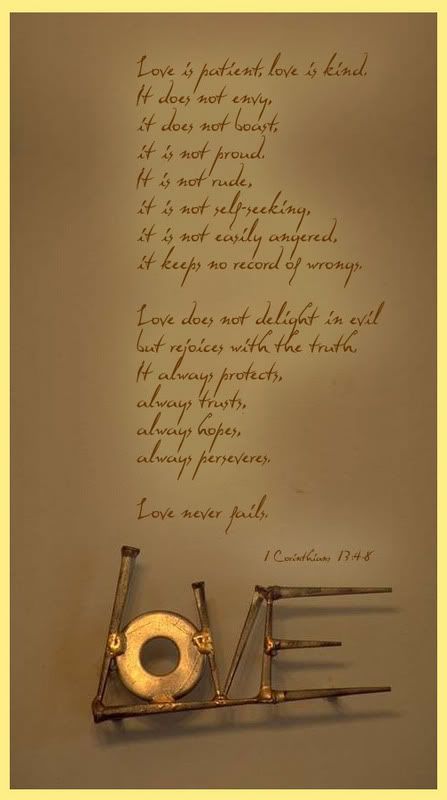 Love is patient, love is kind.
It does not envy,
it does not boast,
it is not proud.
It is not rude,
it is not self-seeking,
it is not easily angered,
it keeps no record of wrongs.
Love does not delight in evil
but rejoices with the truth.
It always protects,
always trusts,
always hopes,
always perseveres.
Love never fails.
1 Corinthians 13:4-8
LOVE